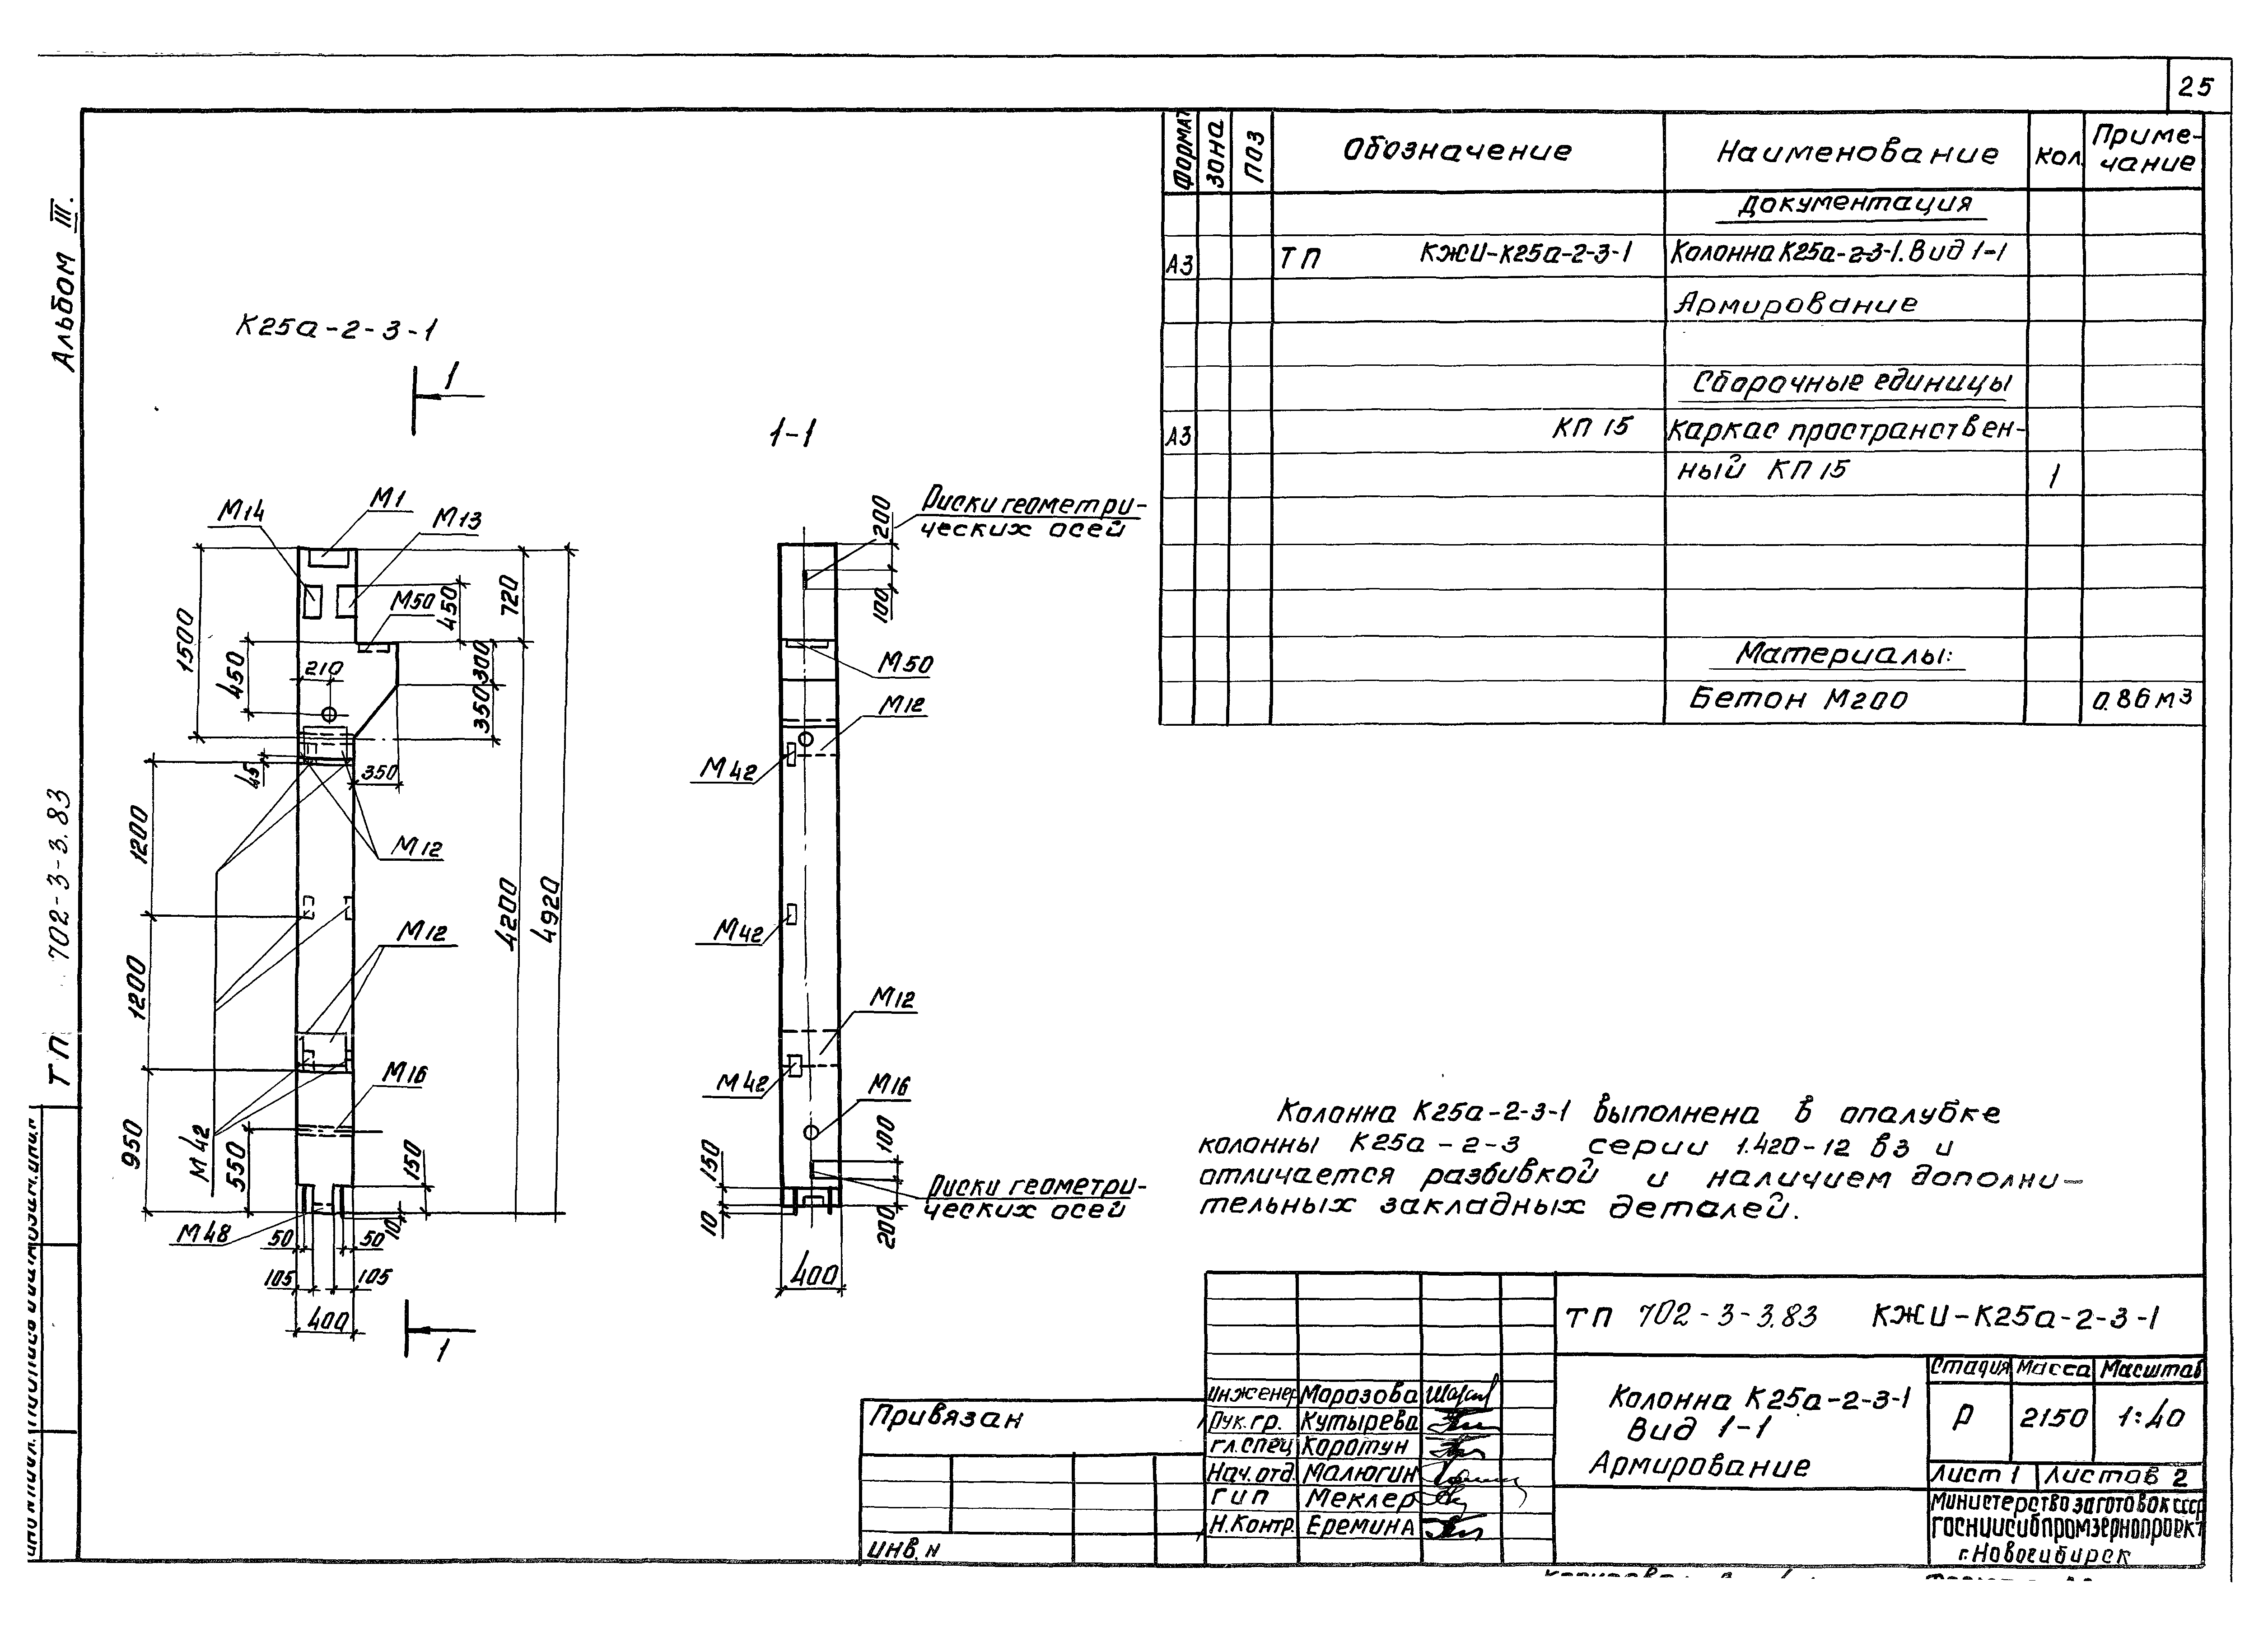 25
Альбом III.
ТП 702-3-3.83
К25а-2-3-1
1
1-1
М14
М1
М13
М50
450
720
1500
450
210
300
350
45
350
1200
М12
М12
1200
4200
4920
М16
950
М42
550
150
10
М48
50
50
105
105
400
1
200
Риски геометри-
ческих осей
100
М50
М12
М42
М42
М12
М42
М16
100
150
Риски геометри-
ческих осей
10
200
400
Формат
Зона
Поз
Обозначение
Наименование
Кол.
Приме-
чание
Документация
А3
ТП КЖИ-К25а-2-3-1
Колонна К25а-2-3-1. Вид 1-1
Армирование
Сборочные единицы
А3
КП 15
Каркас пространствен-
ный КП 15
1
Материалы:
Бетон М200
0.86 м3
Колонна К25а-2-3-1 выполнена в опалубке
колонны К25а-2-3 серии 1.420-12 в3 и
отличается разбивкой и наличием дополни-
тельных закладных деталей.
ТП 702-3-3.83 КЖИ-К25а-2-3-1
Колонна К25а-2-3-1
Вид 1-1
Армирование
Стадия Масса Масштаб
Р 2150 1:40
Лист 1 Листов 2
Министерство заготовок СССР
ГОСНИИСИБПРОМЗЕРНОПРОЕКТ
г. Новосибирск
Инженер Морозова
Рук. гр. Кутырева
гл. спец Коротун
Нач. отд. Малюгин
ГИП Меклер
Н. Контр. Еремина
Привязан
Инв. н